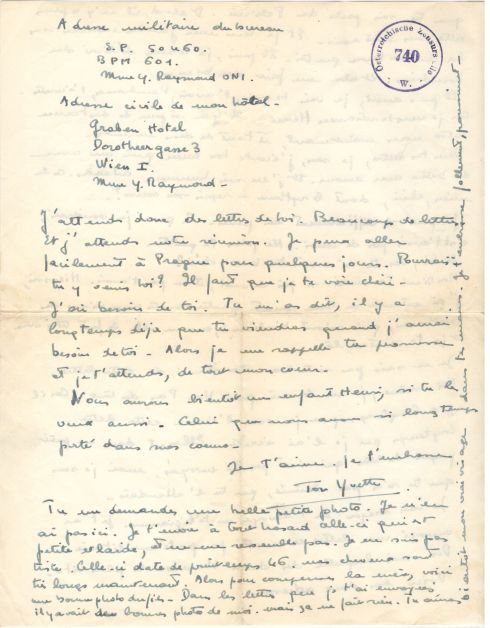 Adresse militaire du bureau
S.P. 50460.
BPM 601.
Mme Y. Raymond ONI.
Adresse civile de mon hôtel-
Graben Hotel
Dorotheergasse 3
Wien I.
Mme Y. Raymond-
Österreichische Zensurstelle
740
W.
J'attends donc des lettres de toi. Beaucoup de lettres
Et j'attends notre réunion. Je peux aller
facilement à Prague pour quelques jours. Pourrais-
tu y venir toi? Il faut que je te voie chéri-
J'ai besoin de toi. Tu m'as dit, il y a
longtemps déjà que tu viendras quand j'aurai
besoin de toi- Alors je me rappelle ta promesse
et je t'attends, de tout mon coeur.
Nous aurons bientôt un enfant Henri, si tu le
veux aussi. Celui que nous avons si longtemps
porté dans nos coeurs-
Je t'aime. Je t'embrasse
Ton Yvette
Tu me demandes une belle petite photo. Je n'en
ai pas ici. Je t'envoie à tout hasard celle-ci qui est
petite et laide, et ne me ressemble pas. Je ne suis pas
triste. Celle-ci date de printemps 46. mes cheveux sont
très longs maintenant. Alors pour compenser la mienne, voici
une bonne photo du fils- Dans les lettres que je t'ai envoyées
il y avait des bonnes photos de moi. mais ça ne fait rien. Tu auras
bientôt mon vrai visage dans tes mains. Je t'embrasse follement,